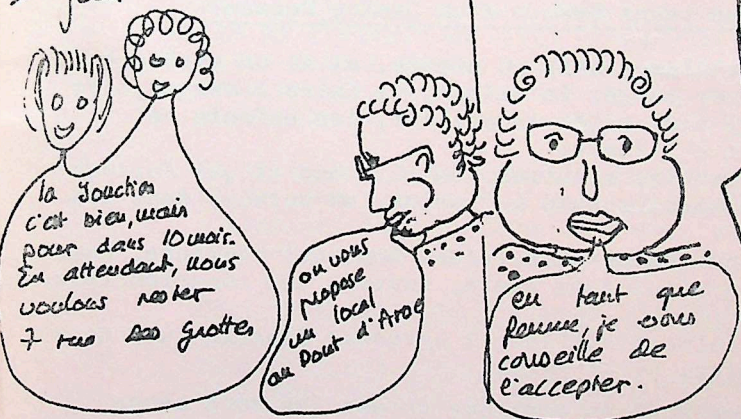 la Jonction
c'est bien, mais
pour dans 10 mois.
En attendant, nous
voulons rester
7 rue des Grottes
on vous
propose
un local
au Pont d'Arve
en tant que
femme, je vous
conseille de
l'accepter.